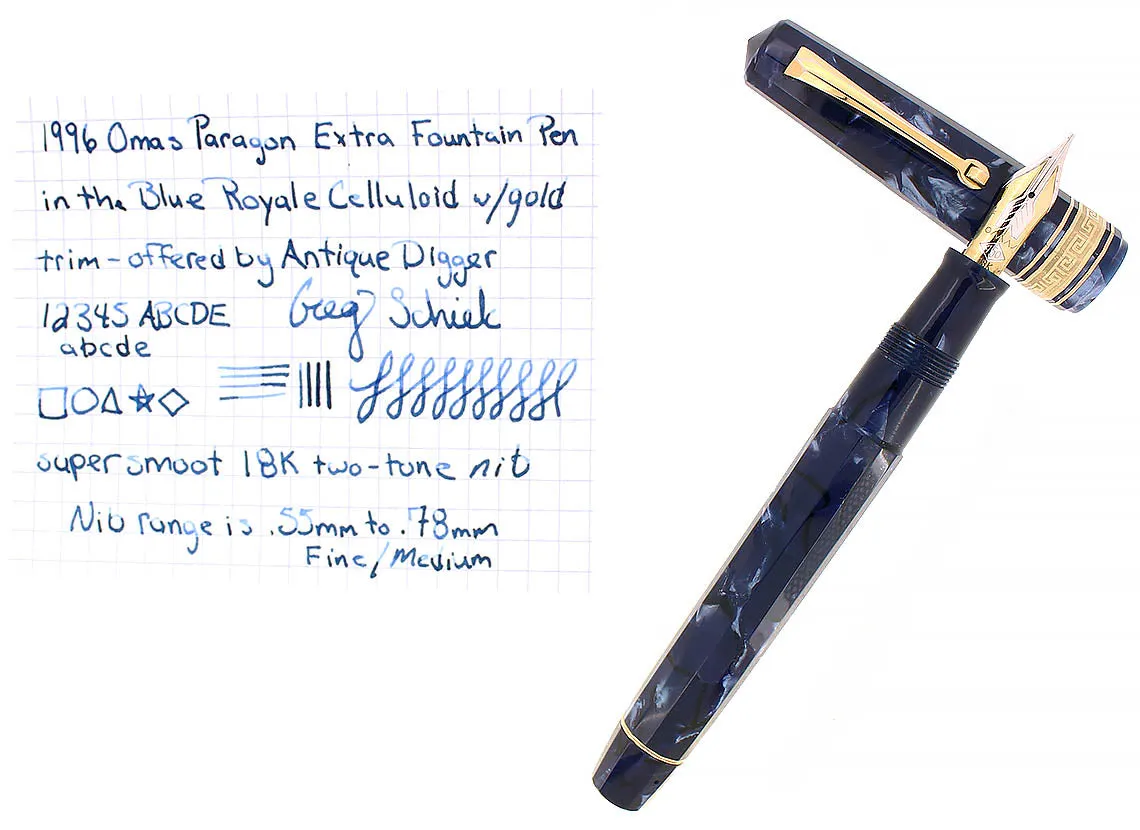 1996 Omas Paragon Extra Fountain Pen
in the Blue Royale Celluloid w/gold
trim - offered by Antique Digger
12345 ABCDE Greg Schiek
abcde
super smoot 18K two-tone nib
Nib range is .55mm to .78mm
Fine/Medium